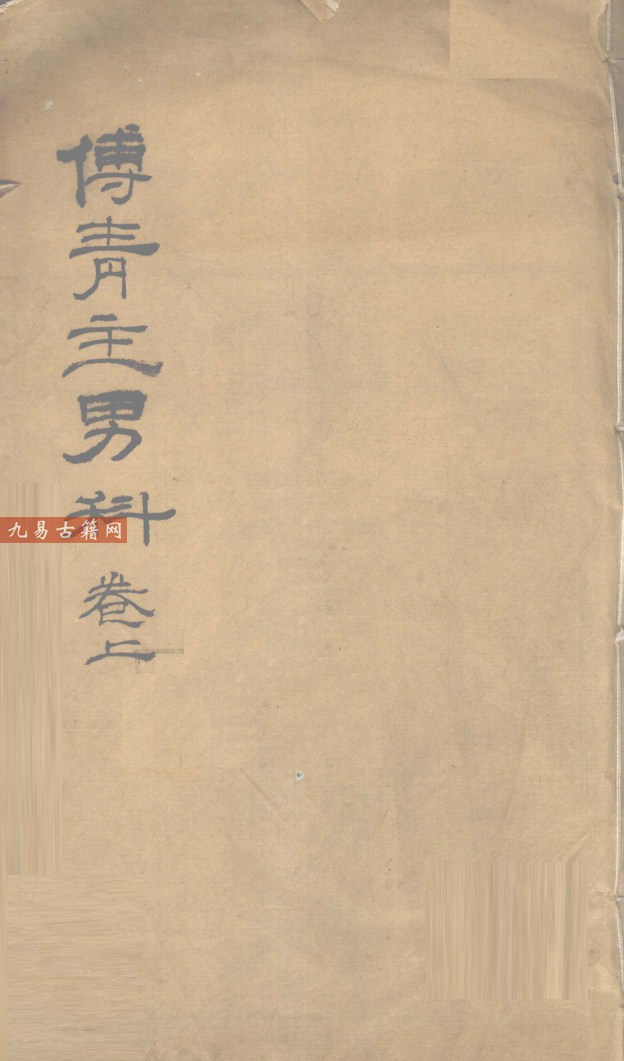 傅青主男科 卷上
九易古籍网